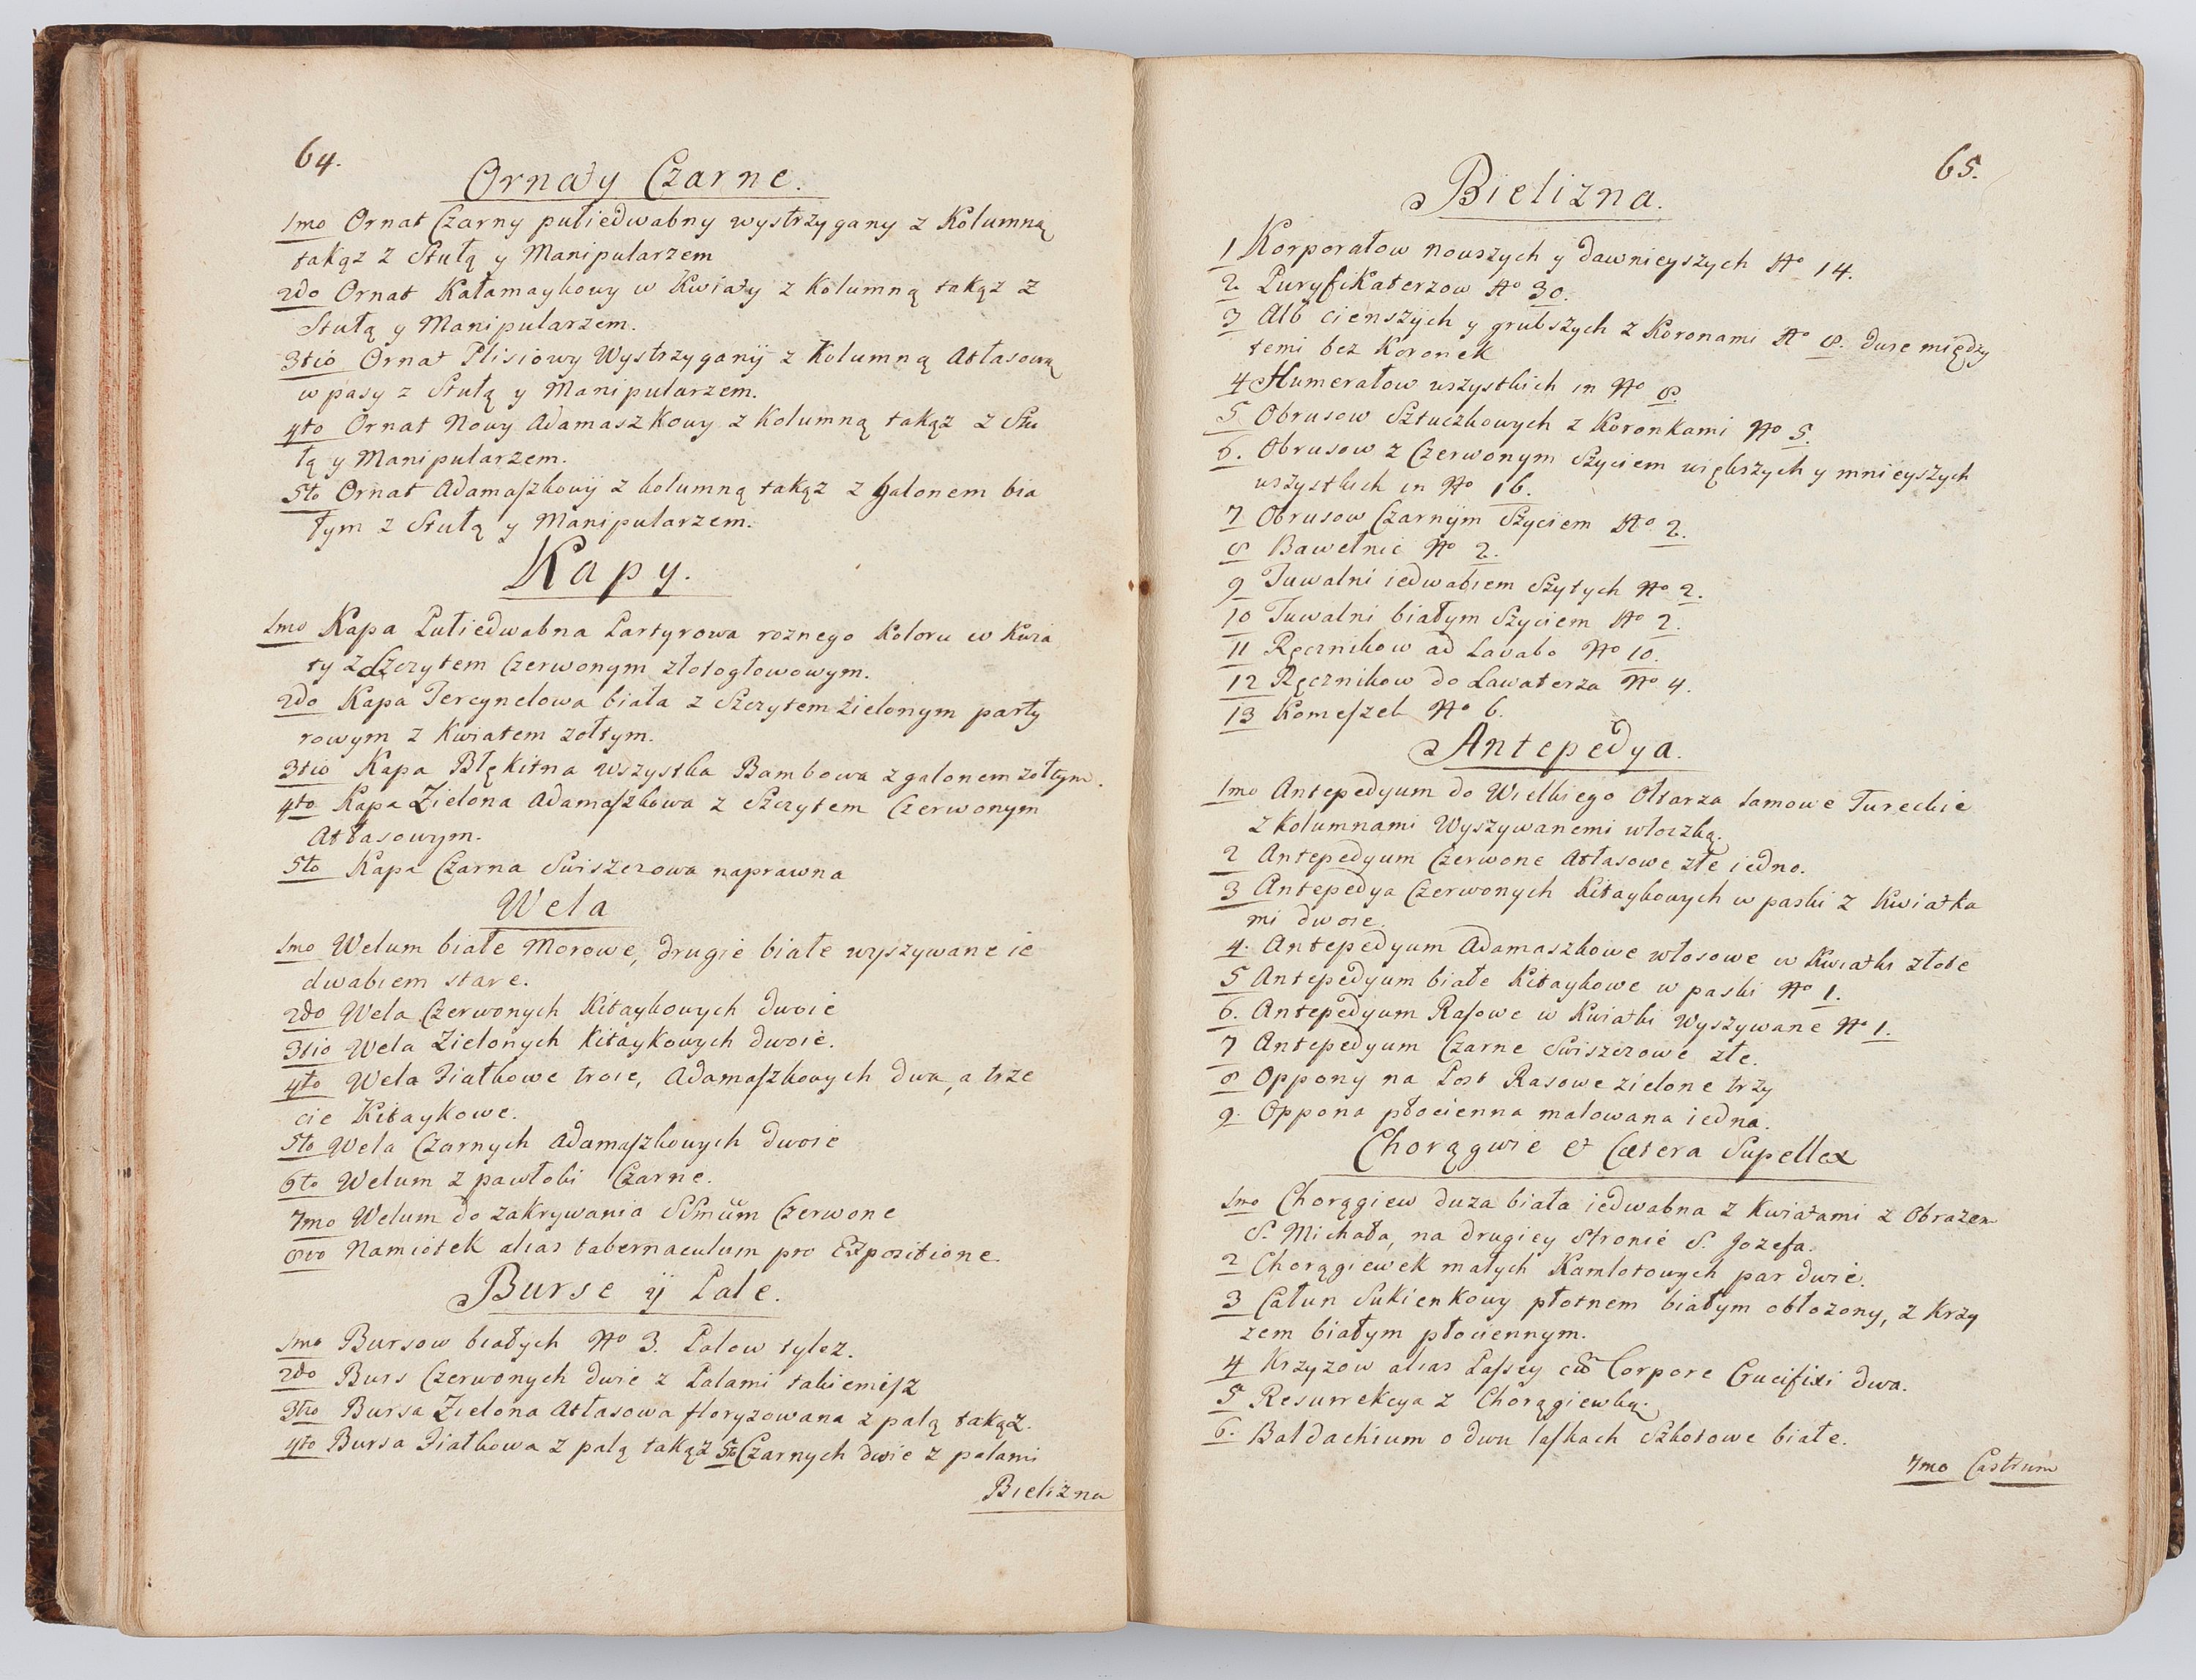 64.
Ornaty Czarne.
1mo Ornat Czarny pułiedwabny wystrzygany z Kolumną
takąz z Stułą y Manipularzem
2do Ornat Kałamaykowy w Kwiaty z Kolumną takąz z
Stułą y Manipularzem.
3tio Ornat Plisiowy Wystrzyganÿ z Kolumną Atłasową
w pasy z Stułą y Manipularzem.
4to Ornat Nowy Adamaszkowy z Kolumną takąz z Stu
łą y Manipularzem.
5to Ornat Adamaszkowÿ z kolumną takąz z Galonem bia
łym z Stułą y Manipularzem.
Kapy.
1mo Kapa Pułiedwabna Partyrowa roznego Koloru w Kwia
ty z Szczytem Czerwonym złotogłowowym.
2do Kapa Tercynelowa biała z Szczytem zielonym party
rowym z Kwiatem zołtym.
3tio Kapa Błękitna Wszystka Bambowa z galonem zołtym.
4to Kapa Zielona Adamaszkowa z Szczytem Czerwonym
Atłasowym.
5to Kapa Czarna Suiszerowa naprawna
Wela
1mo Welum białe Morowe, drugie białe wyszywane ie
dwabiem stare.
2do Wela Czerwonych Kitaykowych dwoie
3tio Wela Zielonych Kitaykowych dwoie.
4to Wela Fiałkowe troie, Adamaszkowych dwa, a trze
cie Kitaykowe.
5to Wela Czarnych Adamaszkowych dwoie
6to Welum z pawłoki Czarne.
7mo Welum do zakrywania SSmum Czerwone
8vo Namiotek alias tabernaculum pro Expositione
Burse ÿ Pale.
1mo Bursow białych No 3. Palow tylez.
2do Burs Czerwonych dwie z Palami takiemisz
3tio Bursa Zielona Atłasowa floryzowana z palą takąz.
4to Bursa Fiałkowa z palą takąz 5to Czarnych dwie z palami
Bielizna
65.
Bielizna.
1 Korporałow nowszych y dawnieyszych No 14.
2. Puryfikaterzow No 30.
3 Alb cienszÿch y grubszych z Koronami No 8. dwie między
temi bez Koronek
4 Humerałow wszystkich in No 8.
5 Obrusow Sztuczkowych z Koronkami No 5.
6. Obrusow z Czerwonym Szyciem większych y mnieyszych
wszystkich in No 16.
7 Obrusow Czarnÿm Szyciem No 2.
8 Bawełnic No 2.
9 Tuwalni iedwabiem Szytych No 2.
10 Tuwalni białym Szyciem No 2.
11 Ręcznikow ad Lavabo No 10.
12 Ręcznikow do Lawaterza No 4.
13 Komeszek No 6.
Antepedya.
1mo Antepedyum do Wielkiego Ołtarza Lamowe Tureckie
z kolumnami Wyszywanemi włoczką.
2 Antepedyum Czerwone Atłasowe złe iedno.
3 Antepedya Czerwonych Kitaykowych w paski z Kwiatka
mi dwoie.
4. Antepedyum Adamaszkowe włosowe w Kwiatki złote
5 Antepedyum białe Kitaykowe w paski No 1.
6. Antepedyum Rasowe w Kwiatki Wyszywane No 1.
7 Antepedyum Czarne Suiszerowe złe.
8 Oppony na Post Rasowe zielone trzy
9. Oppona płocienna malowana iedna.
Chorągwie et Cætera Supellex
1mo Chorągiew duza biała iedwabna z Kwiatami z Obrazem
S. Michała, na drugiey stronie S. Jozefa.
2 Chorągiewek małych Kamlotowych par dwie.
3 Całun Sukienkowy płotnem białym obłozony, z Krzy
zem białym płociennym.
4 Krzyzow alias Passyy cum Corpore Crucifixi dwa.
5 Resurrekcya z Chorągiewką.
6. Baldachium o dwu laskach Szkotowe białe.
7mo Castrum